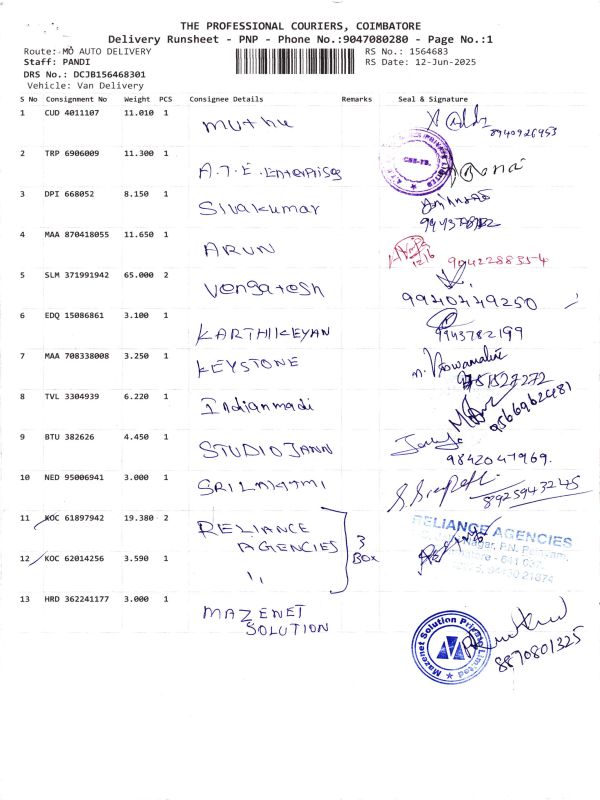 THE PROFESSIONAL COURIERS, COIMBATORE
Delivery Runsheet - PNP - Phone No.:9047080280 - Page No.:1
Route: MO AUTO DELIVERY
RS No.: 1564683
Staff: PANDI
RS Date: 12-Jun-2025
DRS No.: DCJB156468301
Vehicle: Van Delivery
S No Consignment No Weight PCS Consignee Details Remarks Seal & Signature
1 CUD 4011107 11.010 1 muthu
8940926953
2 TRP 6906009 11.300 1 A.T.E. Enterprises
3 DPI 668052 8.150 1 Sivakumar
4 MAA 870418055 11.650 1 ARUN 9042288354
12/6
5 SLM 371991942 65.000 2 Vengatesh 9940449250
6 EDQ 15086861 3.100 1 KARTHIKEYAN 9943782199
7 MAA 708338008 3.250 1 KEYSTONE
8 TVL 3304939 6.220 1 Indianmadi
9566962081
9 BTU 382626 4.450 1 STUDIO JANN
9842047969.
10 NED 95006941 3.000 1 SRI LAKATMI 8925943245
11 KOC 61897942 19.380 2 RELIANCE AGENCIES 3 BOX RELIANCE AGENCIES
12 KOC 62014256 3.590 1 "
13 HRD 362241177 3.000 1 MAZENET SOLUTION
Mazenet Solution Private Limited
8870801325